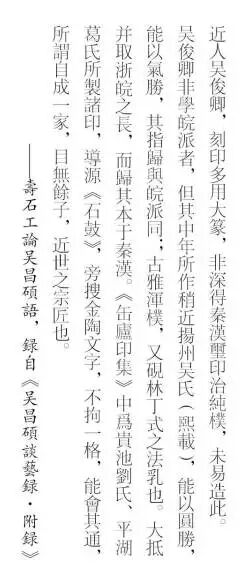 近人吴俊卿，刻印多用大篆，非深得秦漢璽印治純樸，未易造此。
吴俊卿非學皖派者，但其中年所作稍近揚州吴氏（熙載），能以圓勝，
能以氣勝，其指歸與皖派同；古雅渾樸，又硯林丁式之法乳也。大抵
并取浙皖之長，而歸其本于秦漢。《缶廬印集》中爲貴池劉氏、平湖
葛氏所製諸印，導源《石鼓》，旁搜金陶文字，不拘一格，能會其通，
所謂自成一家，目無餘子，近世之宗匠也。
——壽石工論吴昌碩語，録自《吴昌碩談藝録·附録》